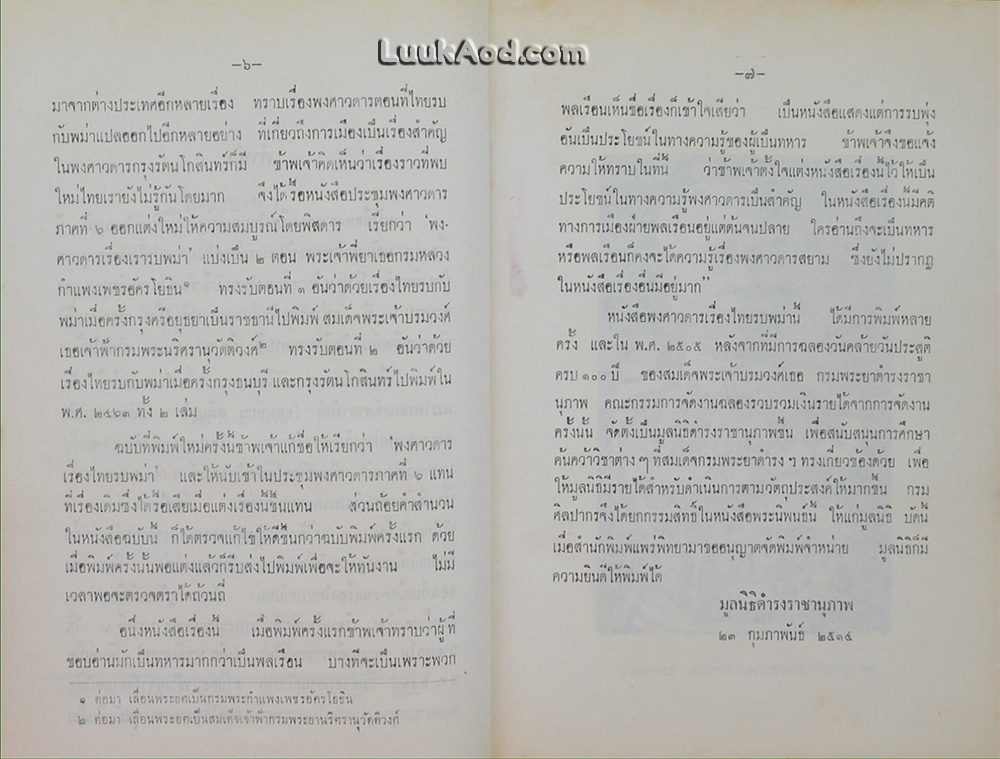 LuukAod.com
–๖–
มาจากต่างประเทศอีกหลายเรื่อง ทราบเรื่องพงศาวดารตอนที่ไทยรบ
กับพม่าแปลออกไปอีกหลายอย่าง ที่เกี่ยวถึงการเมืองเป็นเรื่องสำคัญ
ในพงศาวดารกรุงรัตนโกสินทร์ก็มี ข้าพเจ้าคิดเห็นว่าเรื่องราวที่พบ
ใหม่ไทยเรายังไม่รู้กันโดยมาก จึงได้รื้อหนังสือประชุมพงศาวดาร
ภาคที่ ๖ ออกแต่งใหม่ให้ความสมบูรณ์โดยพิสดาร เรียกว่า 'พง-
ศาวดารเรื่องเรารบพม่า' แบ่งเป็น ๒ ตอน พระเจ้าพี่ยาเธอกรมหลวง
กำแพงเพชรอัครโยธิน๑ ทรงรับตอนที่ ๑ อันว่าด้วยเรื่องไทยรบกับ
พม่าเมื่อครั้งกรุงศรีอยุธยาเป็นราชธานีไปพิมพ์ สมเด็จพระเจ้าบรมวงศ์
เธอเจ้าฟ้ากรมพระนริศรานุวัดติวงศ์๒ ทรงรับตอนที่ ๒ อันว่าด้วย
เรื่องไทยรบกับพม่าเมื่อครั้งกรุงธนบุรี และกรุงรัตนโกสินทร์ไปพิมพ์ใน
พ.ศ. ๒๔๖๓ ทั้ง ๒ เล่ม
ฉบับที่พิมพ์ใหม่ครั้งนี้ข้าพเจ้าแก้ชื่อให้เรียกว่า 'พงศาวดาร
เรื่องไทยรบพม่า' และให้นับเข้าในประชุมพงศาวดารภาคที่ ๖ แทน
ที่เรื่องเดิมซึ่งได้รื้อเสียเมื่อแต่งเรื่องนี้ขึ้นแทน ส่วนถ้อยคำสำนวน
ในหนังสือฉบับนี้ ก็ได้ตรวจแก้ไขให้ดีขึ้นกว่าฉบับพิมพ์ครั้งแรก ด้วย
เมื่อพิมพ์ครั้งนั้นพอแต่งแล้วก็รีบส่งไปพิมพ์เพื่อจะให้ทันงาน ไม่มี
เวลาพอจะตรวจตราได้ถ้วนถี่
อนึ่งหนังสือเรื่องนี้ เมื่อพิมพ์ครั้งแรกข้าพเจ้าทราบว่าผู้ที่
ชอบอ่านมักเป็นทหารมากกว่าเป็นพลเรือน บางทีจะเป็นเพราะพวก
๑ ต่อมา เลื่อนพระยศเป็นกรมพระกำแพงเพชรอัครโยธิน
๒ ต่อมา เลื่อนพระยศเป็นสมเด็จเจ้าฟ้ากรมพระยานริศรานุวัดติวงศ์
–๗–
พลเรือนเห็นชื่อเรื่องก็เข้าใจเสียว่า เป็นหนังสือแสดงแต่การรบพุ่ง
อันเป็นประโยชน์ในทางความรู้ของผู้เป็นทหาร ข้าพเจ้าจึงขอแจ้ง
ความให้ทราบในที่นี้ ว่าข้าพเจ้าตั้งใจแต่งหนังสือเรื่องนี้ไว้ให้เป็น
ประโยชน์ในทางความรู้พงศาวดารเป็นสำคัญ ในหนังสือเรื่องนี้มีคติ
ทางการเมืองฝ่ายพลเรือนอยู่แต่ต้นจนปลาย ใครอ่านถึงจะเป็นทหาร
หรือพลเรือนก็คงจะได้ความรู้เรื่องพงศาวดารสยาม ซึ่งยังไม่ปรากฏ
ในหนังสือเรื่องอื่นมีอยู่มาก"
หนังสือพงศาวดารเรื่องไทยรบพม่านี้ ได้มีการพิมพ์หลาย
ครั้ง และใน พ.ศ. ๒๕๐๕ หลังจากที่มีการฉลองวันคล้ายวันประสูติ
ครบ ๑๐๐ ปี ของสมเด็จพระเจ้าบรมวงศ์เธอ กรมพระยาดำรงราชา
นุภาพ คณะกรรมการจัดงานฉลองรวบรวมเงินรายได้จากการจัดงาน
ครั้งนั้น จัดตั้งเป็นมูลนิธิดำรงราชานุภาพขึ้น เพื่อสนับสนุนการศึกษา
ค้นคว้าวิชาต่าง ๆ ที่สมเด็จกรมพระยาดำรง ฯ ทรงเกี่ยวข้องด้วย เพื่อ
ให้มูลนิธิมีรายได้สำหรับดำเนินการตามวัตถุประสงค์ให้มากขึ้น กรม
ศิลปากรจึงได้ยกกรรมสิทธิ์ในหนังสือพระนิพนธ์นี้ ให้แก่มูลนิธิ บัดนี้
เมื่อสำนักพิมพ์แพร่พิทยามาขออนุญาตจัดพิมพ์จำหน่าย มูลนิธิก็มี
ความยินดีให้พิมพ์ได้
มูลนิธิดำรงราชานุภาพ
๒๓ กุมภาพันธ์ ๒๕๑๔